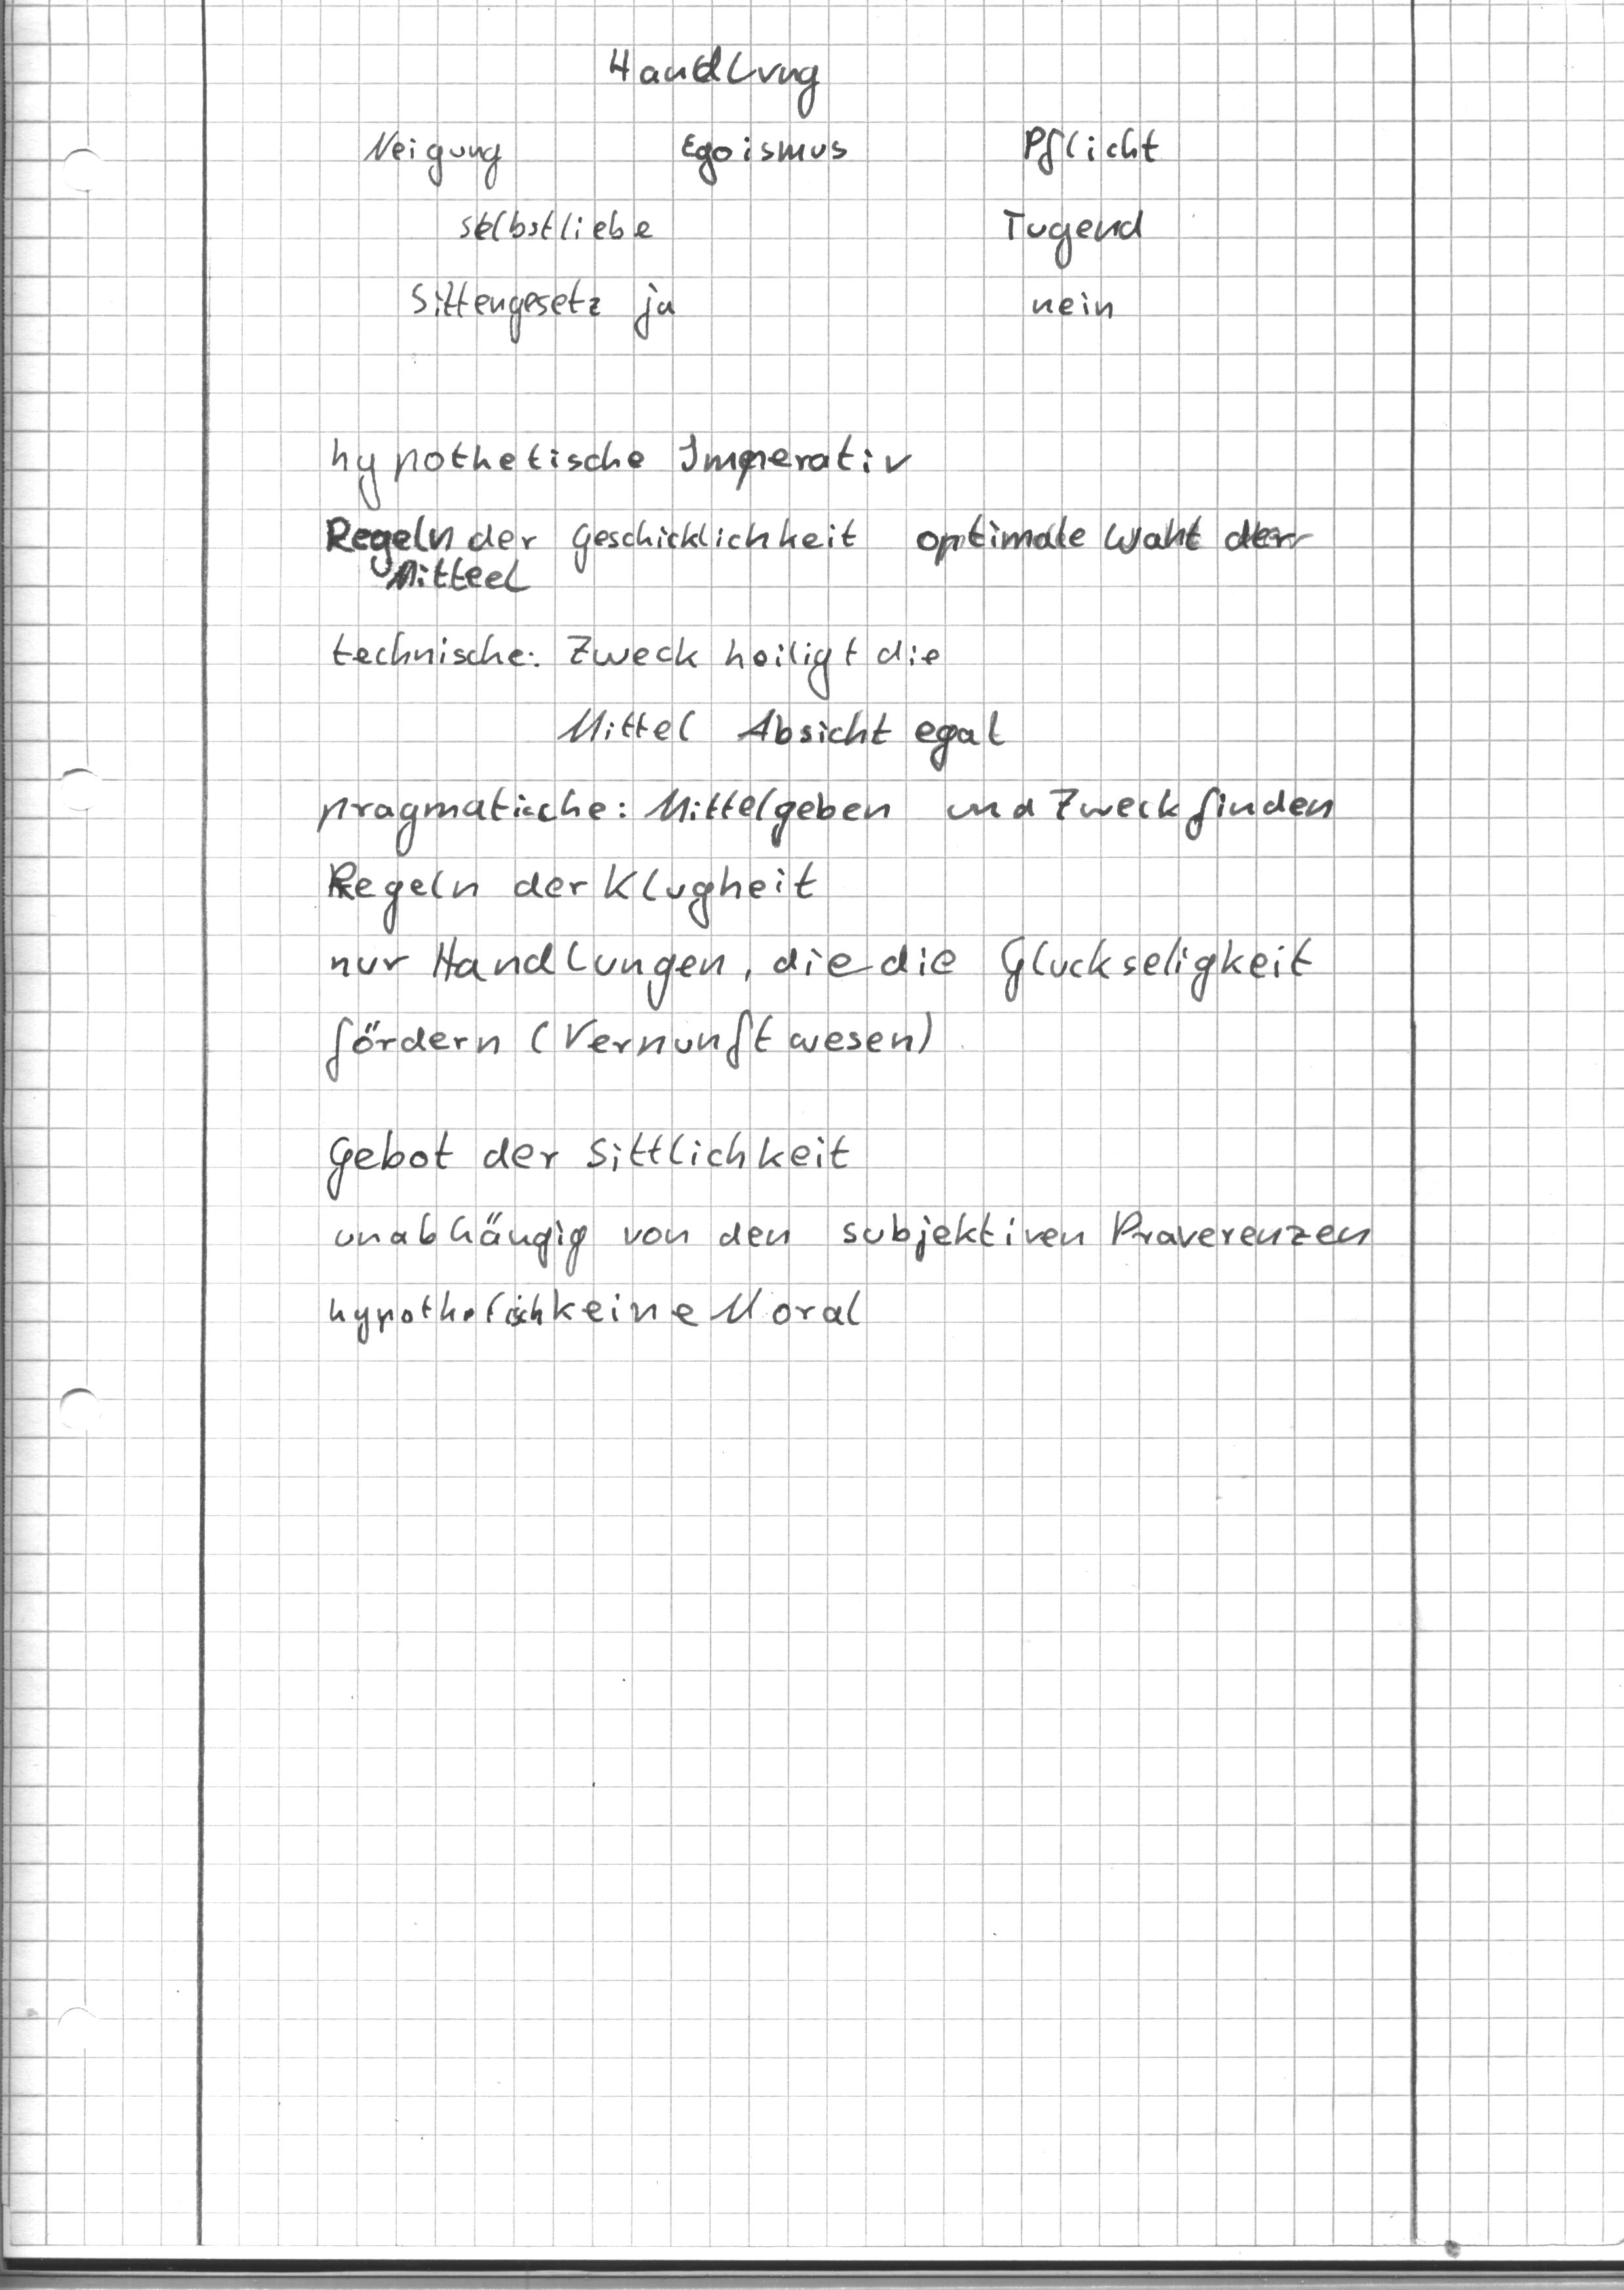 Handlung
Neigung Egoismus Pflicht
selbstliebe Tugend
Sittengesetz ja nein
hypothetische Imperativ
Regeln der Geschicklichkeit optimale Waht der
Mitteel
technische: Zweck heiligt die
Mittel Absicht egal
pragmatische: Mittelgeben und Zweck finden
Regeln der Klugheit
nur Handlungen, die die Gluckseligkeit
fördern (Vernunftwesen)
Gebot der Sittlichkeit
unabhängig von den subjektiven Praverenzen
hypothetisch keine Moral